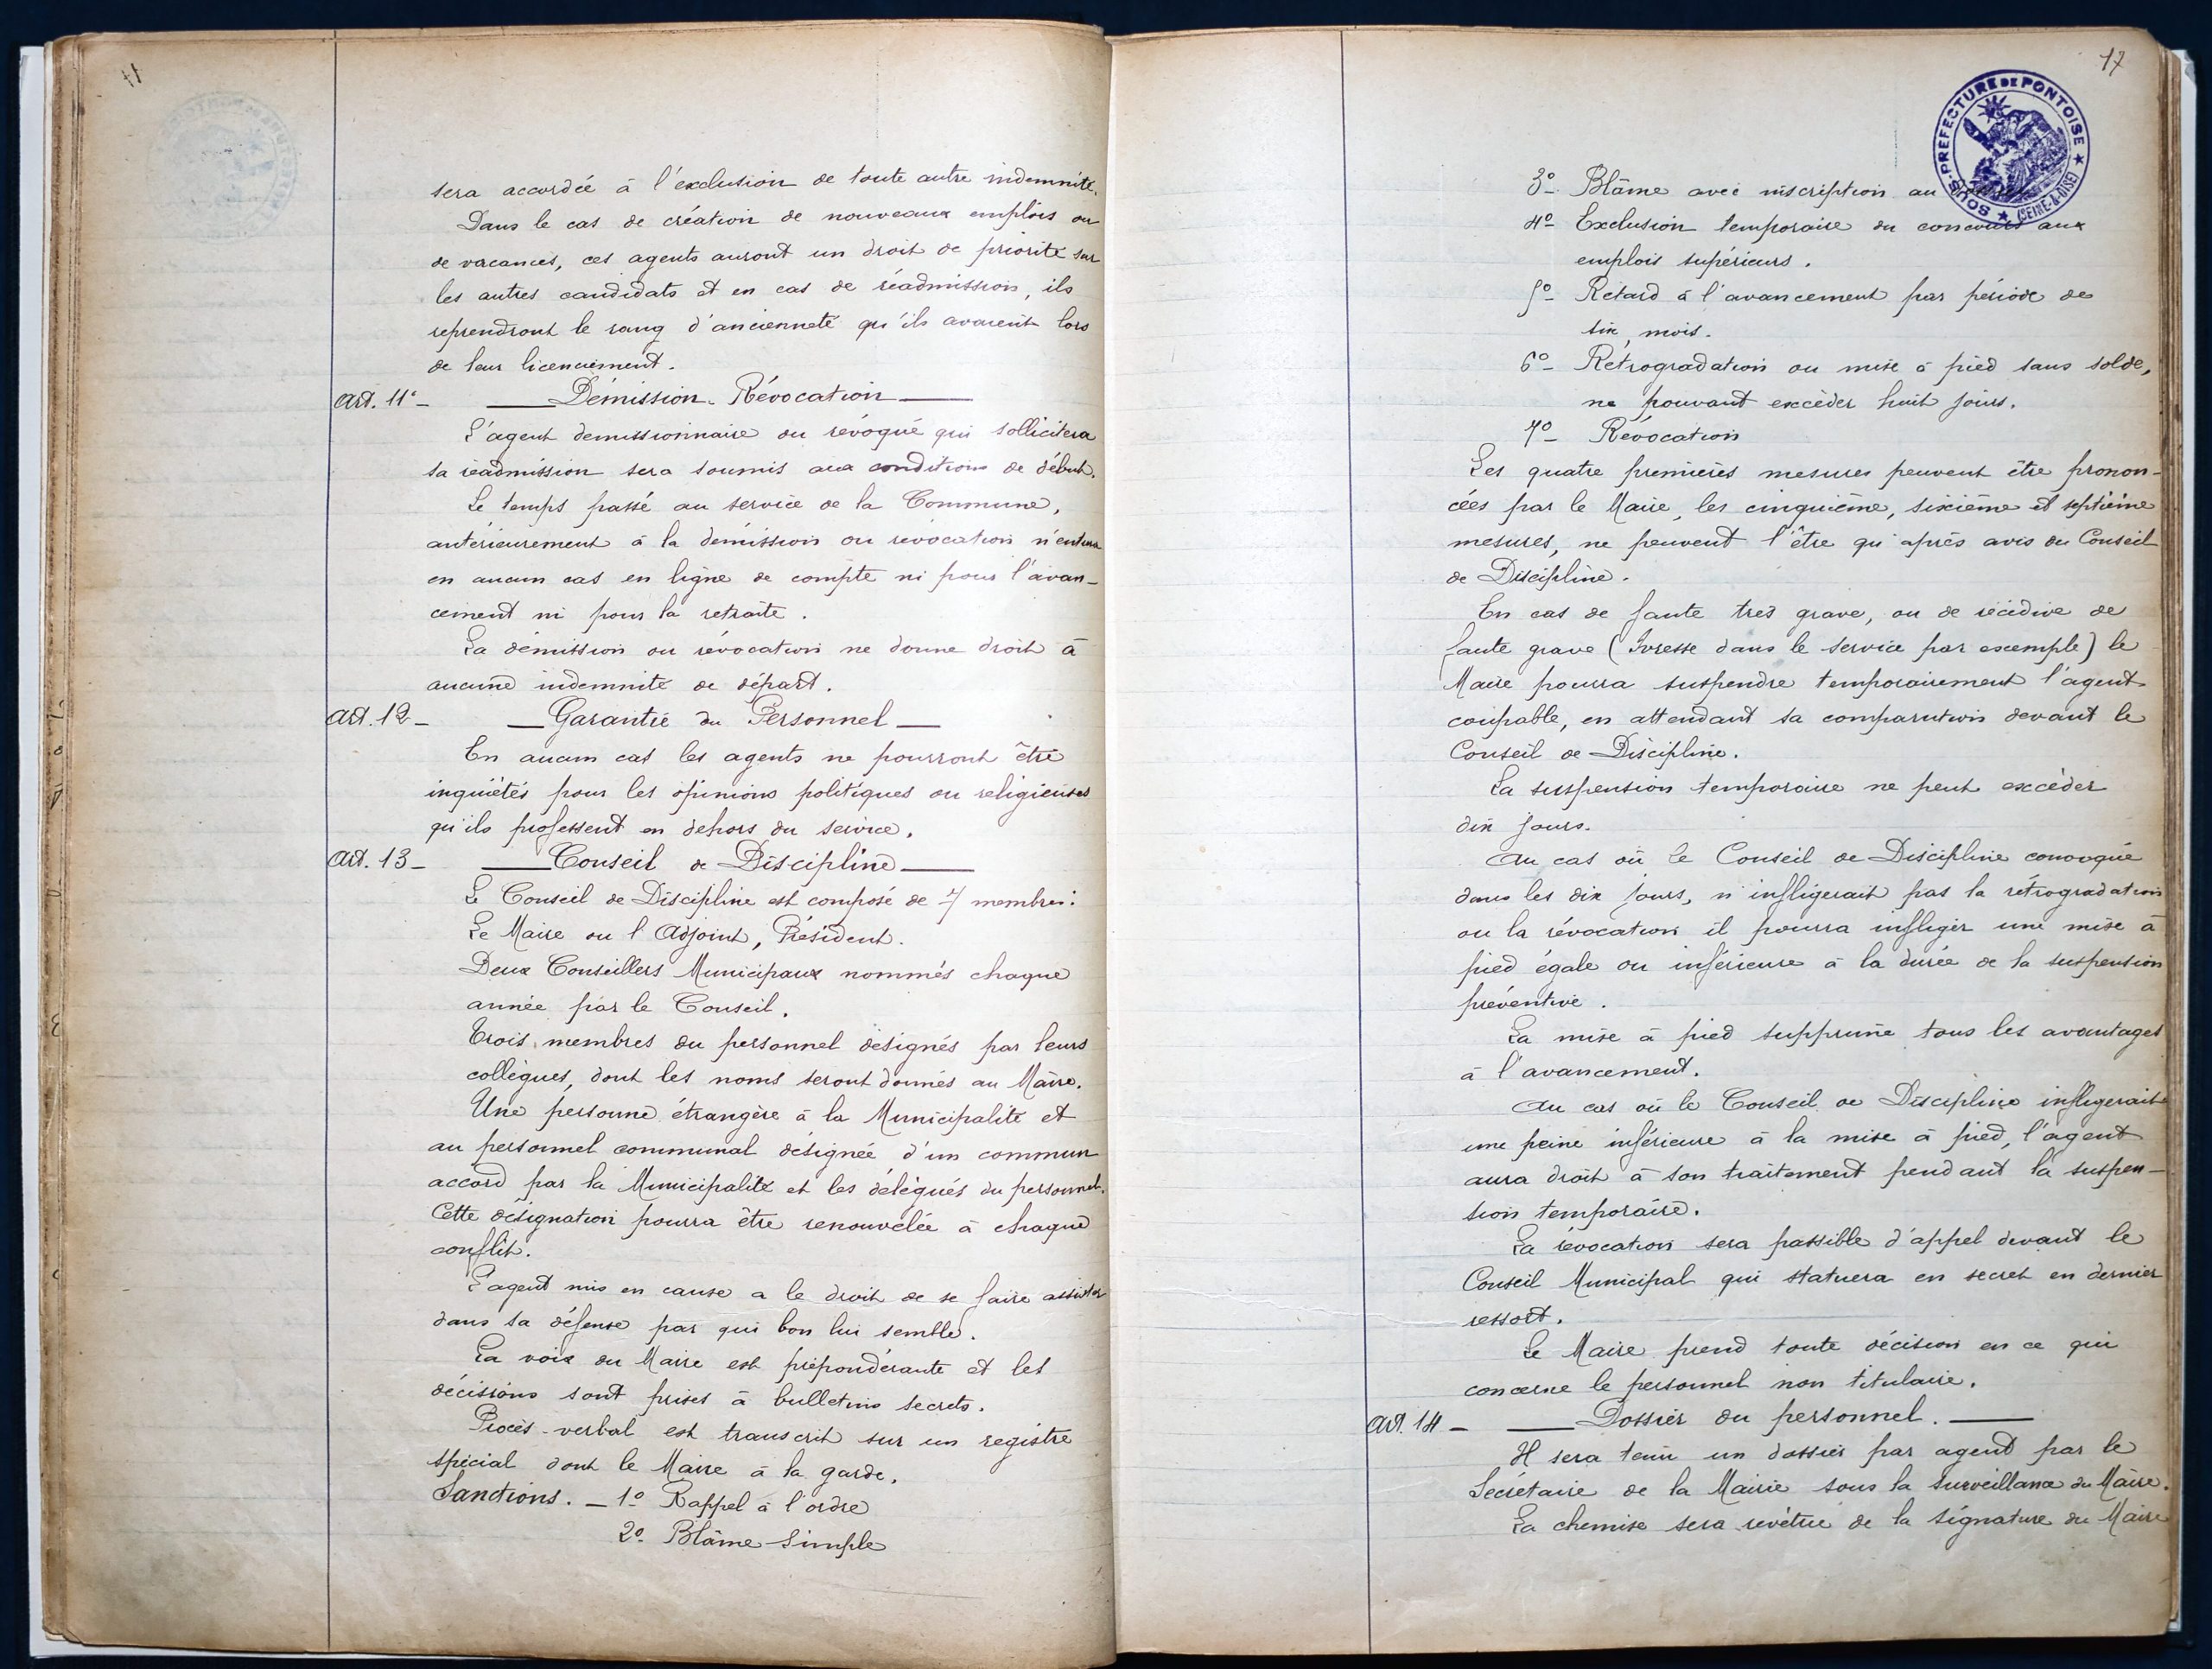 sera accordée à l'exclusion de toute autre indemnité.
Dans le cas de création de nouveaux emplois ou
de vacances, ces agents auront un droit de priorité sur
les autres candidats et en cas de réadmission, ils
reprendront le rang d'ancienneté qu'ils avaient lors
de leur licenciement.
Art. 11° — Démission - Révocation —
L'agent démissionnaire ou révoqué qui sollicitera
sa réadmission sera soumis aux conditions de début.
Le temps passé au service de la Commune,
antérieurement à la démission ou révocation n'entrera
en aucun cas en ligne de compte ni pour l'avan-
cement ni pour la retraite.
La démission ou révocation ne donne droit à
aucune indemnité de départ.
Art. 12 — Garantie du Personnel —
En aucun cas les agents ne pourront être
inquiétés pour les opinions politiques ou religieuses
qu'ils professent en dehors du service.
Art. 13 — Conseil de Discipline —
Le Conseil de Discipline est composé de 7 membres :
Le Maire ou l'Adjoint, Président.
Deux Conseillers Municipaux nommés chaque
année par le Conseil.
Trois membres du personnel désignés par leurs
collègues, dont les noms seront donnés au Maire.
Une personne étrangère à la Municipalité et
au personnel communal désignée d'un commun
accord par la Municipalité et les délégués du personnel.
Cette désignation pourra être renouvelée à chaque
conflit.
L'agent mis en cause a le droit de se faire assister
dans sa défense par qui bon lui semble.
La voix du Maire est prépondérante et les
décisions sont prises à bulletins secrets.
Procès-verbal est transcrit sur un registre
spécial dont le Maire à la garde.
Sanctions. — 1° Rappel à l'ordre
2° Blâme simple
17
SOUS-PREFECTURE DE PONTOISE ★ (SEINE-&-OISE) ★
3° - Blâme avec inscription au dossier
4° - Exclusion temporaire du concours aux
emplois supérieurs.
5° - Retard à l'avancement par période de
six mois.
6° - Rétrogradation ou mise à pied sans solde,
ne pouvant excéder huit jours.
7° - Révocation
Les quatre premières mesures peuvent être pronon-
cées par le Maire, les cinquième, sixième et septième
mesures, ne peuvent l'être qu'après avis du Conseil
de Discipline.
En cas de faute très grave, ou de récidive de
faute grave (Ivresse dans le service par exemple) le
Maire pourra suspendre temporairement l'agent
coupable, en attendant sa comparution devant le
Conseil de Discipline.
La suspension temporaire ne peut excéder
dix jours.
Au cas où le Conseil de Discipline convoqué
dans les dix jours, n'infligerait pas la rétrogradation
ou la révocation il pourra infliger une mise à
pied égale ou inférieure à la durée de la suspension
préventive.
La mise à pied supprime tous les avantages
à l'avancement.
Au cas où le Conseil de Discipline infligerait
une peine inférieure à la mise à pied, l'agent
aura droit à son traitement pendant la suspen-
sion temporaire.
La révocation sera passible d'appel devant le
Conseil Municipal qui statuera en secret en dernier
ressort.
Le Maire prend toute décision en ce qui
concerne le personnel non titulaire.
Art. 14 — Dossier du personnel. —
Il sera tenu un dossier par agent par le
Secrétaire de la Mairie sous la surveillance du Maire.
La chemise sera revêtue de la signature du Maire